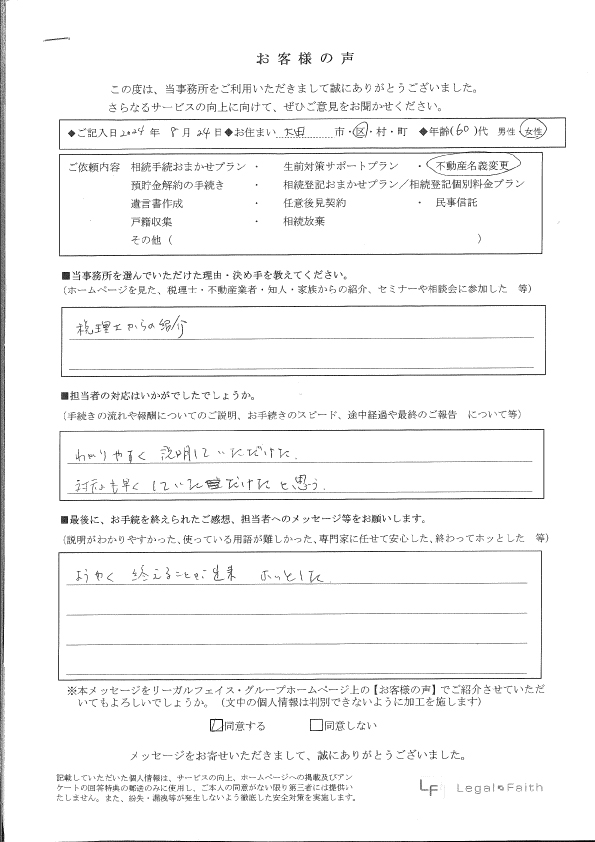 お客様の声
この度は、当事務所をご利用いただきまして誠にありがとうございました。
さらなるサービスの向上に向けて、ぜひご意見をお聞かせください。
◆ご記入日2024年 8月24日◆お住まい 大田 市・区・村・町 ◆年齢(60)代 男性・女性
ご依頼内容 相続手続おまかせプラン ・ 生前対策サポートプラン ・ 不動産名義変更
預貯金解約の手続き ・ 相続登記おまかせプラン／相続登記個別料金プラン
遺言書作成 ・ 任意後見契約 ・ 民事信託
戸籍収集 ・ 相続放棄
その他（ ）
■当事務所を選んでいただけた理由・決め手を教えてください。
（ホームページを見た、税理士・不動産業者・知人・家族からの紹介、セミナーや相談会に参加した 等）
税理士からの紹介
■担当者の対応はいかがでしたでしょうか。
（手続きの流れや報酬についてのご説明、お手続きのスピード、途中経過や最終のご報告 について等）
わかりやすく 説明していただけた.
対応も早く していただけたと思う.
■最後に、お手続を終えられたご感想、担当者へのメッセージ等をお願いします。
（説明がわかりやすかった、使っている用語が難しかった、専門家に任せて安心した、終わってホッとした 等）
ようやく 終えることが出来 ホッとした.
※本メッセージをリーガルフェイス・グループホームページ上の【お客様の声】でご紹介させていただ
いてもよろしいでしょうか。（文中の個人情報は判別できないように加工を施します）
同意する 同意しない
メッセージをお寄せいただきまして、誠にありがとうございました。
記載していただいた個人情報は、サービスの向上、ホームページへの掲載及びアン
ケートの回答特典の郵送のみに使用し、ご本人の同意がない限り第三者には提供い
たしません。また、紛失・漏洩等が発生しないよう徹底した安全対策を実施します。
LF Legal Faith